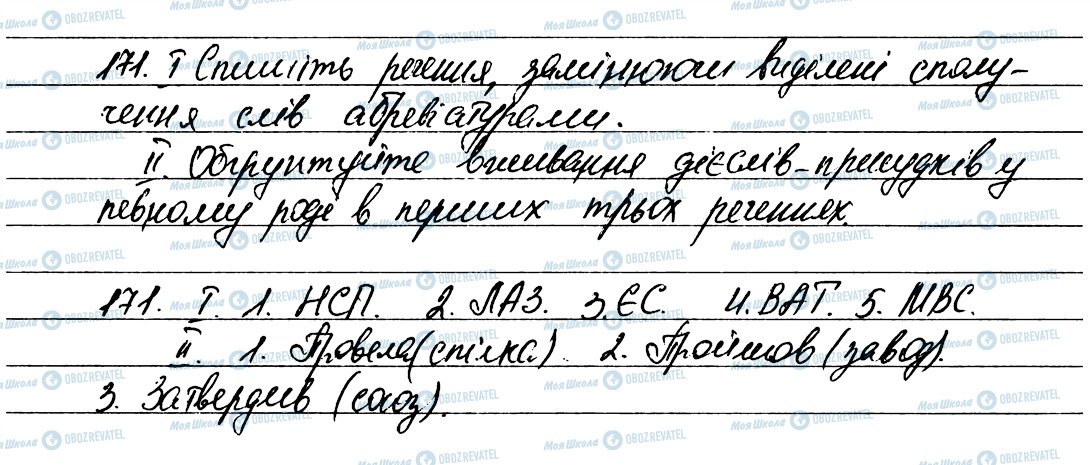 171. I Спишіть речення, замінюючи виділені сполу-
чення слів абревіатурами.
II. Обґрунтуйте вживання дієслів-присудків у
певному роді в перших трьох реченнях.
171. I. 1. НСП. 2. ЛАЗ. 3. ЄС. 4. ВАТ. 5. МВС.
II. 1. Провела (спілка). 2. Пройшов (завод).
3. Затвердив (союз).